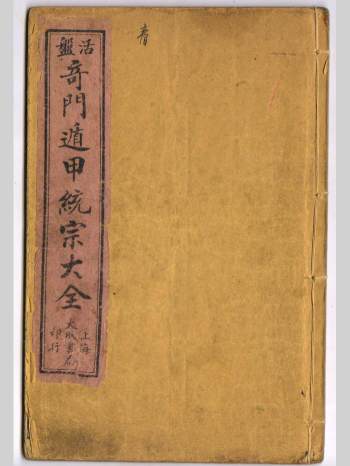 活盤
竒門遁甲統宗大全
上海
大成書局
印行